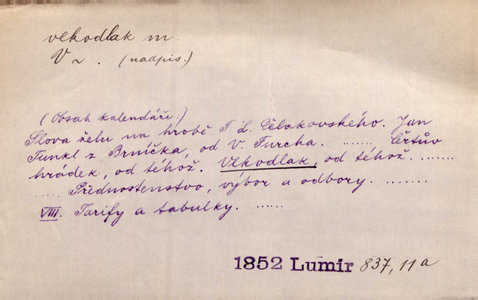 vlkodlak m.
V~. (nadpis.)
(Obsah kalendáře.)
Slova želu na hrobě F. L. Čelakovského. Jan
Tunkl z Brníčka, od V. Furcha. ....... Čertův
hrádek, od téhož. Vlkodlak, od téhož. .......
....... Přednostenstvo, výbor a odbory. .......
VIII. Tarify a tabulky. .......
1852 Lumír 837, 11a